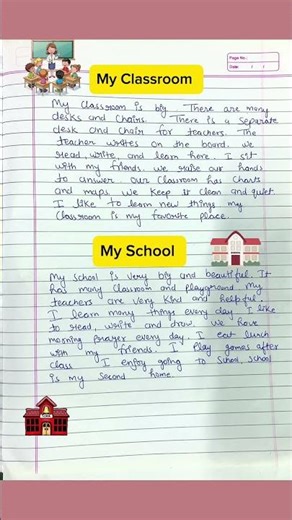 Page No.:
Date: / /
My Classroom
My Classroom is big. There are many
desks and chairs. There is a separate
desk and chair for teachers. The
teacher writes on the board. We
read, write, and learn here. I sit
with my friends. We raise our hands
to answer. our classroom has charts
and maps. We keep it clean and quiet
I like to learn new things my
Classroom is my favorite place.
My School
My School is very big and beautiful. It
has many classroom and playground. My
teachers are very kind and helpful.
I learn many things every day. I like
to read, write and draw. We have
morning Prayer every day. I eat lunch
with my friends. I Play games after
class I enjoy going to School, School
is my second home.